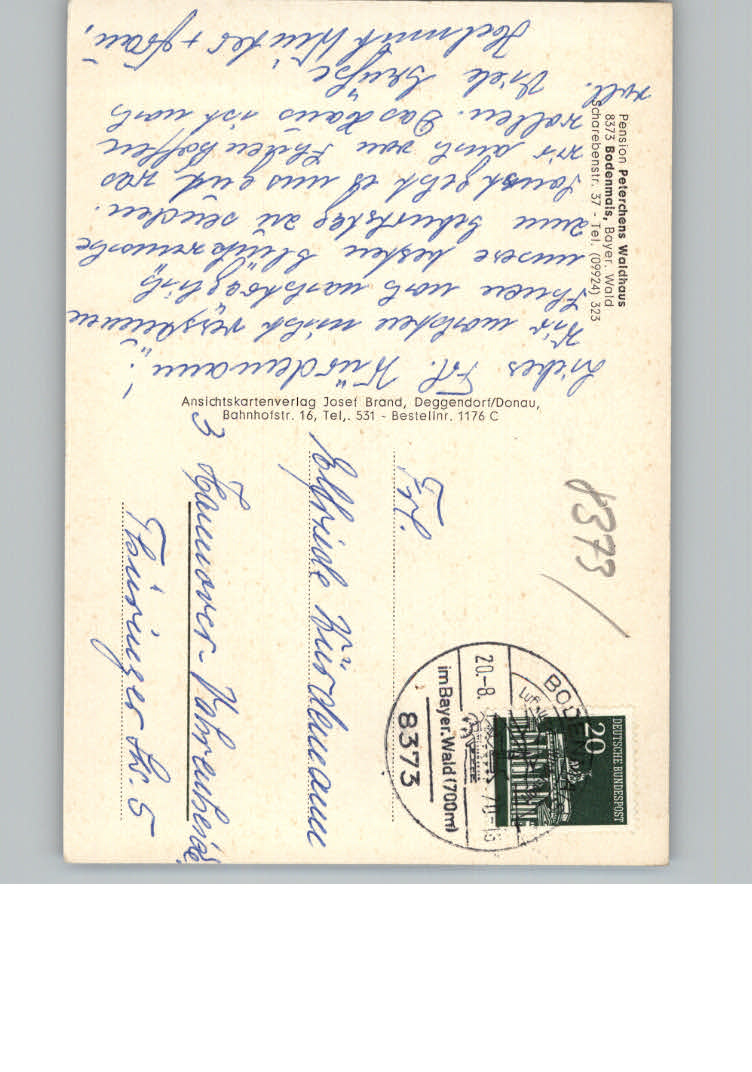 Pension Peterchens Waldhaus
8373 Bodenmais, Bayer. Wald
Scharebenstr. 37 - Tel. (09924) 323
Liebes Frl. Kürdemann!
Wir möchten nicht versäumen
Ihnen noch nachträglich
unsere besten Glückwünsche
zum Geburtstag zu senden.
Sonst geht es uns gut, was
wir auch von Ihnen hoffen
wollen. Das Haus ist noch
voll.
Viele Grüße
Helmut Winkler + Frau,
Ansichtskartenverlag Josef Brand, Deggendorf/Donau,
Bahnhofstr. 16, Tel,. 531 - Bestellnr. 1176 C
Frl.
Elfriede Kürdemann
3 Hannover-Vahrenheide
Thüringer Str. 5
8373
DEUTSCHE BUNDESPOST
20
BODENMAIS
20.-8.
im Bayer. Wald (700m)
8373